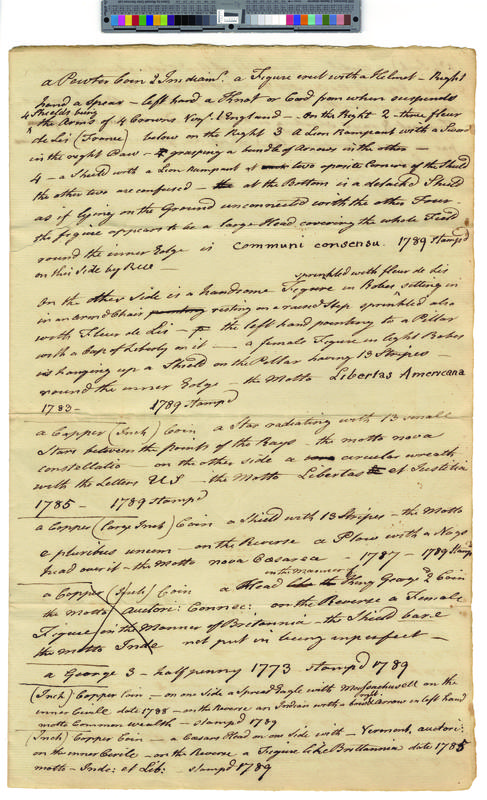 a Pewter Coin 2 In diamr. a Figure erect with a Helmet - Right
hand a Spear - left hand a Knot or Cord from when suspends
4 Shields being
the Arms of 4 Crowns Viz 1 England - On the Right 2 - three fleur
de Lis (France) below on the Right 3 A Lion Rampant with a Sword
in the right Paw - grasping a bundle of Arrows in the other -
4 - a Shield with a Lion Rampant at two oposite Corners of the Shield
the other two are confused - at the Bottom is a detached Shield
as if lying on the Ground unconnected with the other Four -
the figure appears to be a large Head covering the whole Field
round the inner Edge is communi consensu. 1789 Stamp'd
on this Side by
sprinkled with fleur de lis
On the other Side is a handsome Figure in Robes sitting in
in an armd Chair resting on a raised Step sprinkled also
with Fleur de Lis - the left hand pointing to a Pillar
with a Cap of Liberty on it - a female Figure in light Robes
is hanging up a Shield on the Pillar having 13 Stripes -
round the inner Edge - the Motto Libertas Americana
1783 - 1789 Stamp'd
a Copper (Inch) Coin a Star radiating with 13 small
Stars between the points of the Rays - the motto nova
constellatio - on the other side a circular wreath
with the Letters US - the Motto Libertas et Justitia
1785 - 1789 Stamp'd
a Copper (large Inch) Coin a Shield with 13 Stripes - the Motto
e pluribus unum - on the Reverse a Plow with a Nags
head over it - the Motto nova Cæsarea - 1787 - 1789 Stamp'd
in the Manner of
a Copper (Inch) Coin a Head like the King George 2 Coin
the Motto Auctori: Connec: on the Reverse a Female
Figure in the Manner of Britannia - the Shield bare
the Motto Inde not put in being imperfect -
a George 3 - halfpenny 1773 - stamp'd 1789
(Inch) Copper Coin - on one Side a Spread Eagle with Massachusett on the
inner Circle date 1788 - on the Reverse an Indian with a bow & arrow in left hand
motto Common wealth - Stamp'd 1789
(Inch) Copper Coin - a Cæsars Head on one side with - Vermont. auctori:
on the inner Circle - on the Reverse a Figure like Brittannia date 1785
motto - Inde: et Lib: - Stamp'd 1789